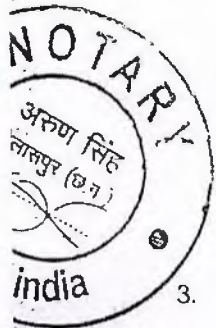 NOTARY
अरुण सिंह
लासपुर (छ.ग.)
india
3.